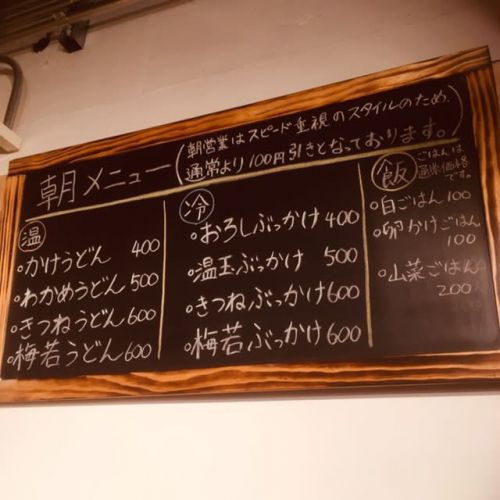 朝メニュー
(朝営業はスピード重視のスタイルのため、
通常より100円引きとなっております。)
温
かけうどん 400
わかめうどん 500
きつねうどん 600
梅若うどん 600
冷
おろしぶっかけ 400
温玉ぶっかけ 500
きつねぶっかけ 600
梅若ぶっかけ 600
飯
ごはんは
通常価格
です。
白ごはん 100
卵かけごはん
100
山菜ごはん
200